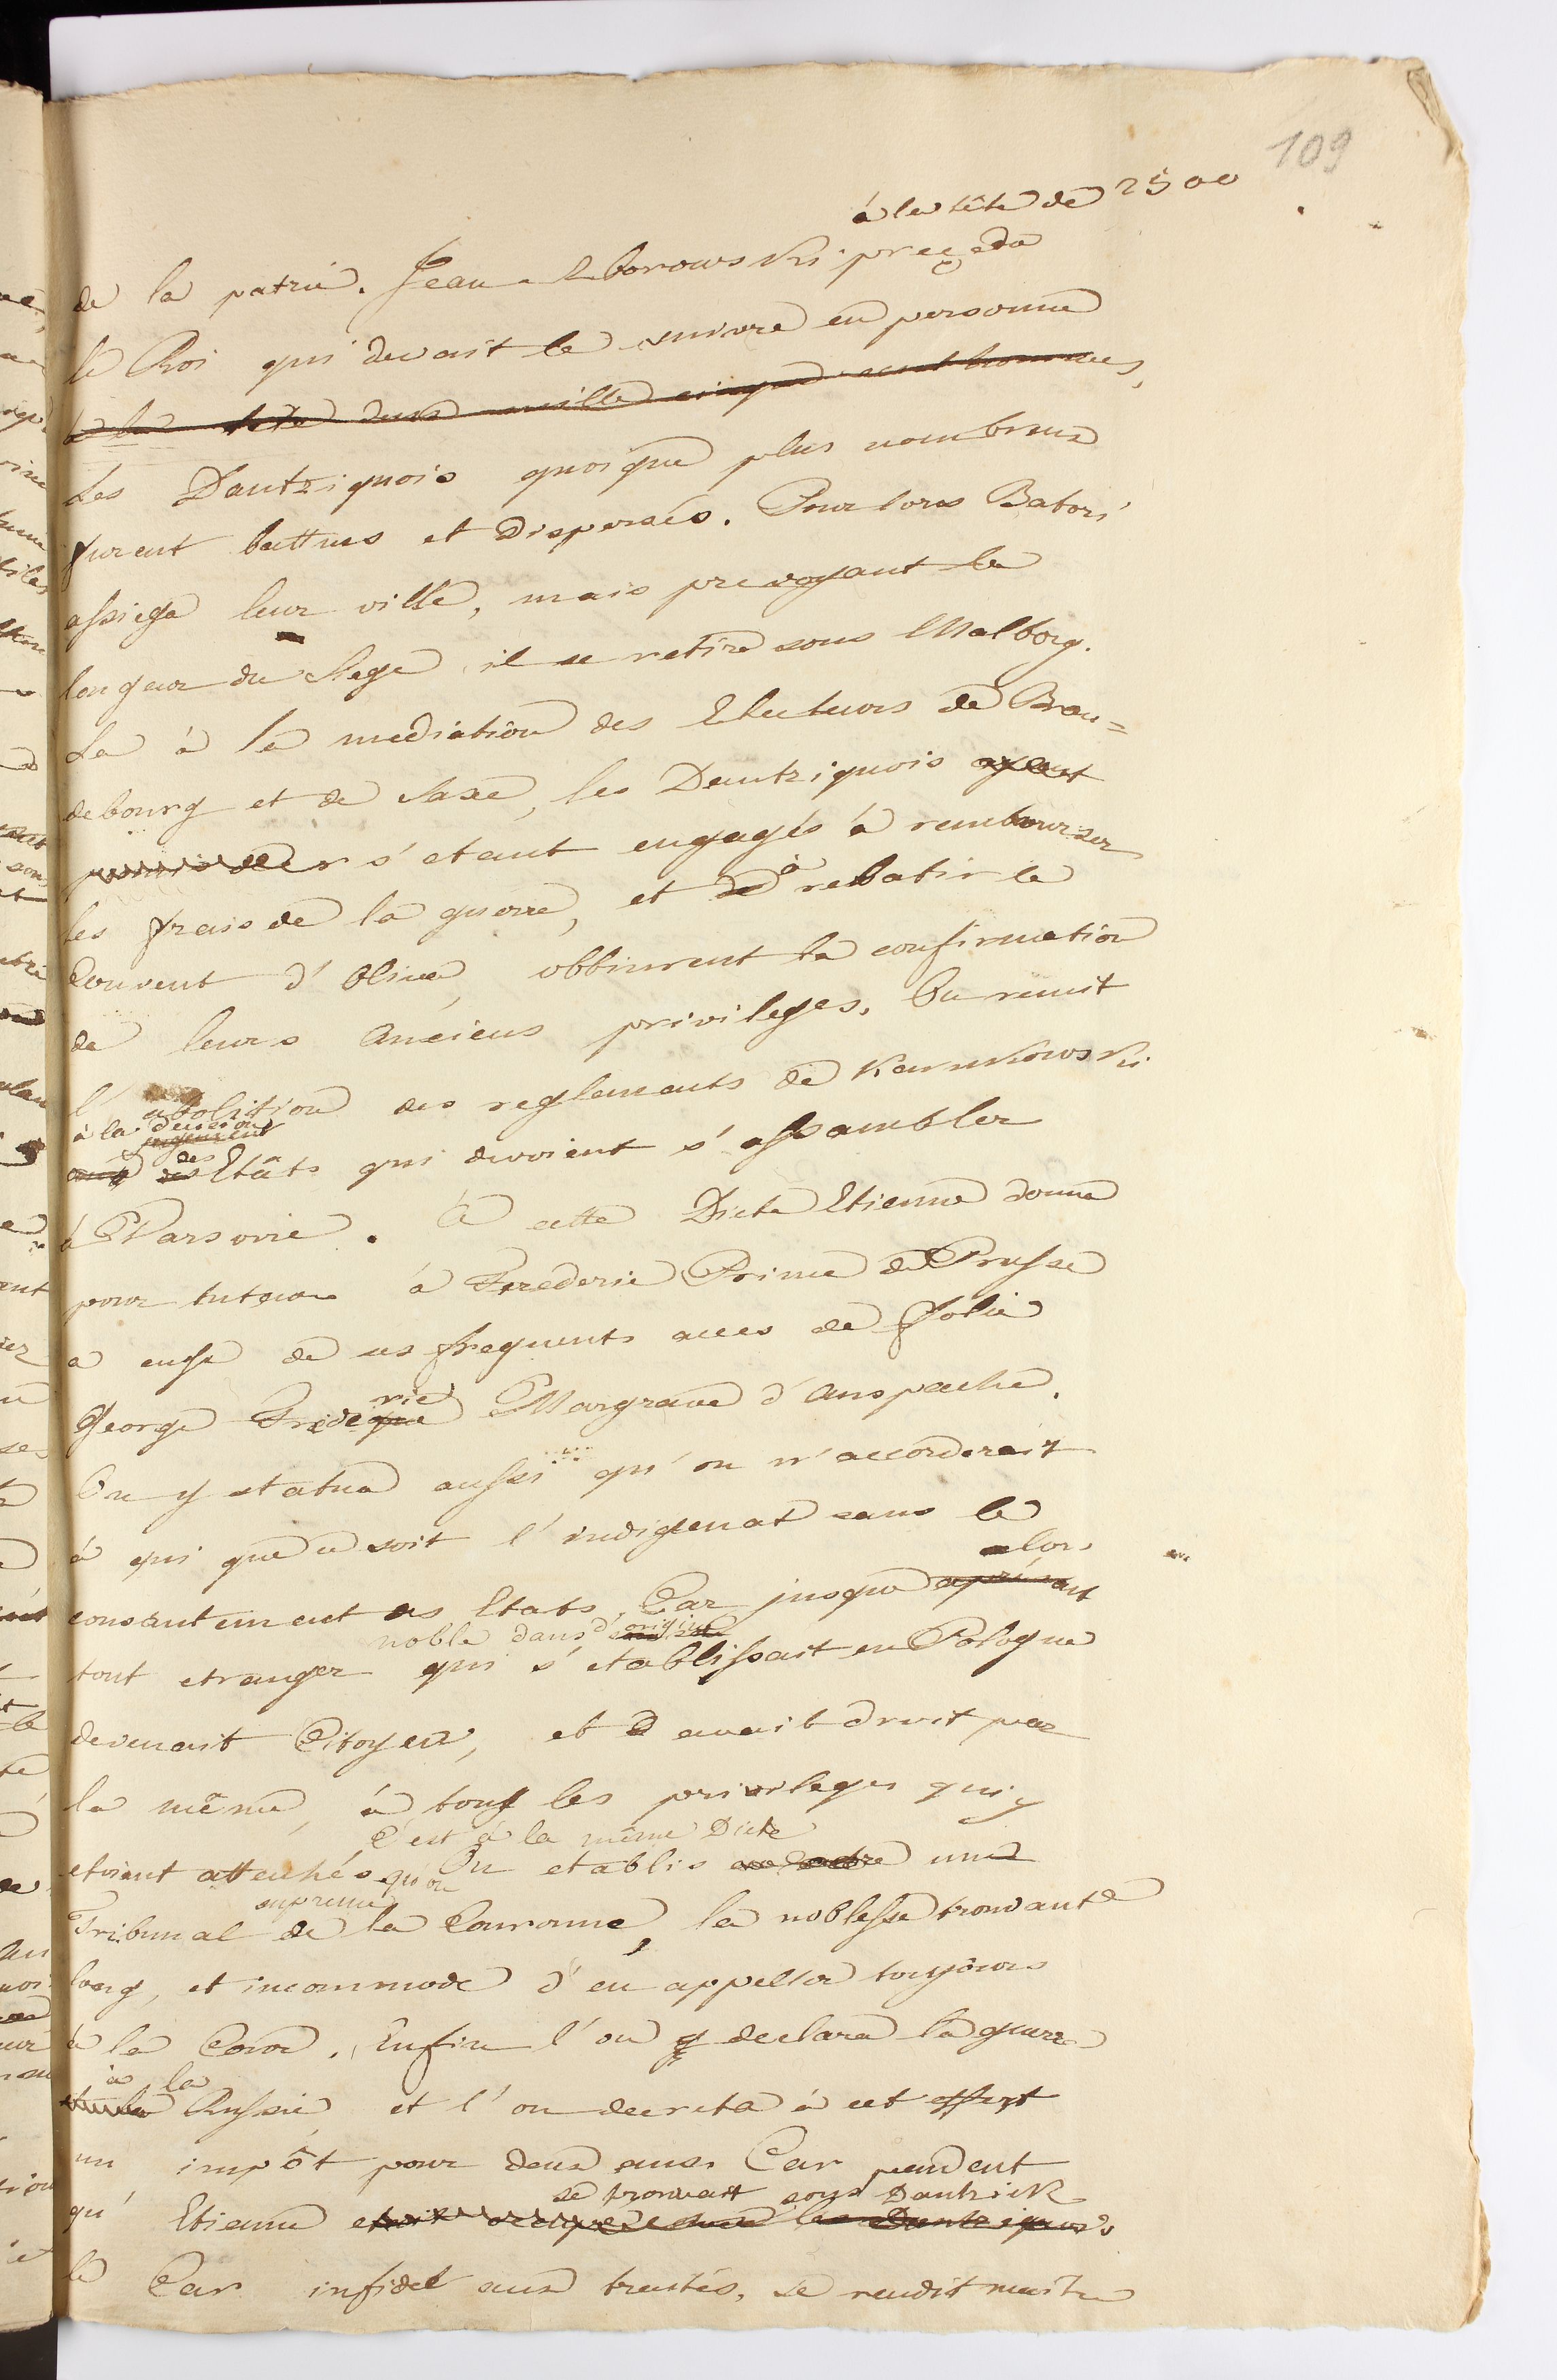 109
à la tête de 2500
de la patrie. Jean Zborowski preceda
le Roi qui devait le suivre en personne
à la tête deux mille cinque cent hommes,
Les Dantziquois quoique plus nombreux
furent battus et dispersés. Pour lors Batori
assiega leur ville, mais prevoyant la
longeur du siege il se retire sous Malborg.
La à la mediation des Electeurs de Bran=
debourg et de Saxe, les Dantziquois ayant
s'etant engagés à rembourser
les frais de la guerre, et de à rebatir le
Couvent d'Olive, obtinrent la confirmation
de leurs anciens privileges. On remit
l'abolition des reglements de Karnkowski
à la decision
jugement
des
aux des Etâts qui devoient s'assambler
à Varsovie. A cette Diete Etienne donne
pour tuteur à Frederic Prince de Prusse
a cause de ses frequents acces de folie
ric
George Frideque Margrave d'Anspache.
On y statua aussi qu'on n'accorderait
à qui que ce soit l'indigenat sans le
alors
consantement des Etats. Car jusque
noble dans d'origine
tout etranger qui s'etablissait en Pologne
devenait Citoyen, et avait droit par
la même, à tous les privileges qui y
C'est à la même Diete
etoient attachés qu'on On etablis une
supreme
Tribunal de la Couronne, la noblesse trouvant
long, et incommode d'en appeller toujours
à la Cour. Enfin l'on y declara la guerre
à la
Russie et l'on decreta à cet effert
un impôt pour deux ans. Car pendent
se trouvait sous Dantzick
qu'Etienne etoit occupé les Dantziquois
le Czar infidel aux traités, se rendit maitre